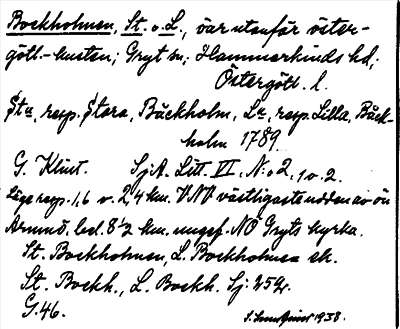 Bockholmen, St. o. L., öar utanför öster-
götl.-kusten; Gryt sn; Hammarkinds hd;
Östergötl. l.
Sta, resp. Stora, Bäckholm, La, resp. Lilla, Bäck-
holm 1789
G. Klint. Sj.A. Litt. VI, N:o 2, 1 o. 2.
Läge resp. 1,6 o. 2,4 km. VNV västligaste udden av ön
led. 8½ km. ungef. NÖ Gryts kyrka.
St. Bockholmen, L. Bockholmen ek.
St. Bockh., L. Bockh. Sj: 259.
G. 46.
1938.